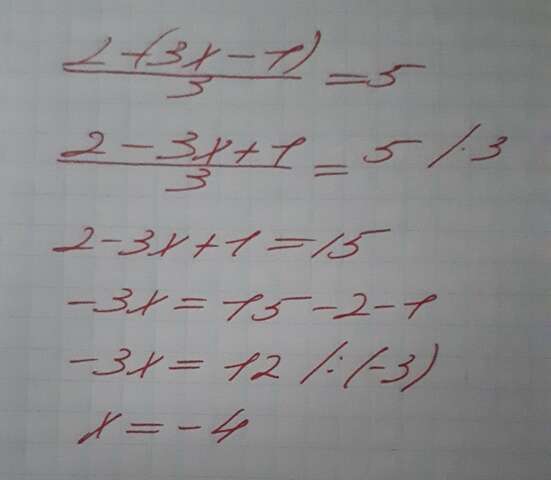 (2-(3x-1))/3 = 5
(2-3x+1)/3 = 5 /·3
2-3x+1=15
-3x=15-2-1
-3x=12 /:(-3)
x=-4